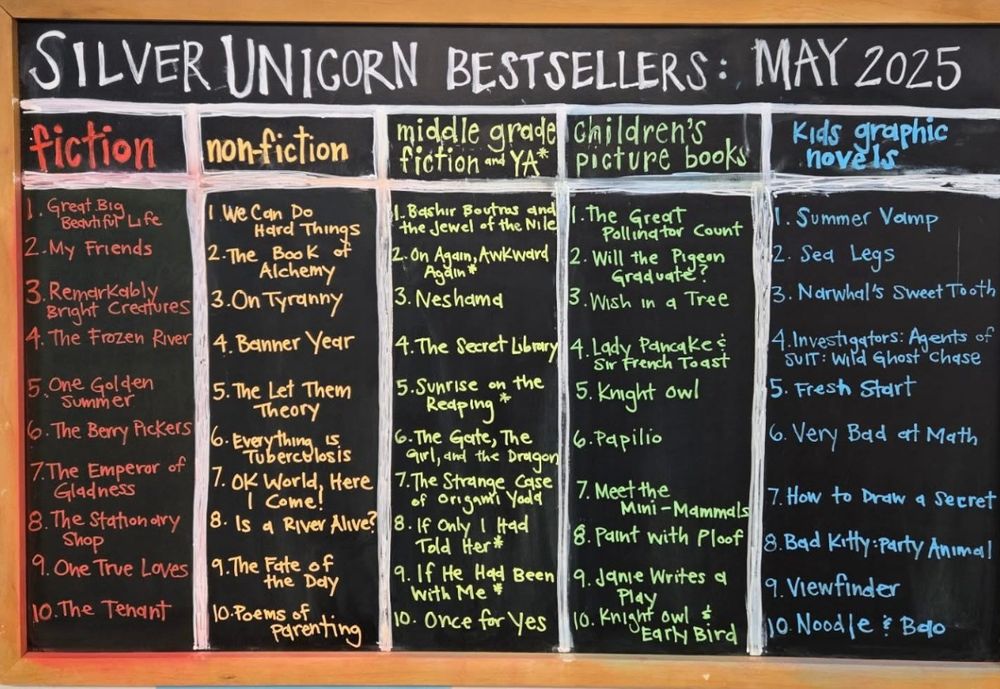 SILVER UNICORN BESTSELLERS: MAY 2025
fiction
1. Great Big
Beautiful Life
2. My Friends
3. Remarkably
Bright Creatures
4. The Frozen River
5. One Golden
Summer
6. The Berry Pickers
7. The Emperor of
Gladness
8. The Stationary
Shop
9. One True Loves
10. The Tenant
non-fiction
1 We Can Do
Hard Things
2. The Book of
Alchemy
3. On Tyranny
4. Banner Year
5. The Let Them
Theory
6. Everything is
Tuberculosis
7. OK World, Here
I Come!
8. Is a River Alive?
9. The Fate of
the Day
10. Poems of
Parenting
middle grade
fiction and YA*
1. Bashir Boutros and
the Jewel of the Nile
2. On Again, Awkward
Again*
3. Neshama
4. The Secret Library
5. Sunrise on the
Reaping *
6. The Gate, The
Girl, and the Dragon
7. The Strange Case
of Origami Yoda
8. If Only I Had
Told Her*
9. If He Had Been
With Me *
10. Once for Yes
children's
picture books
1. The Great
Pollinator Count
2. Will the Pigeon
Graduate?
3. Wish in a Tree
4. Lady Pancake &
Sir French Toast
5. Knight Owl
6. Papilio
7. Meet the
Mini-Mammals
8. Paint with Ploof
9. Janie Writes a
Play
10. Knight Owl &
Early Bird
Kids graphic
novels
1. Summer Vamp
2. Sea Legs
3. Narwhal's Sweet Tooth
4. Investigators: Agents of
SUIT: Wild Ghost Chase
5. Fresh Start
6. Very Bad at Math
7. How to Draw a Secret
8. Bad Kitty: Party Animal
9. Viewfinder
10. Noodle & Bao